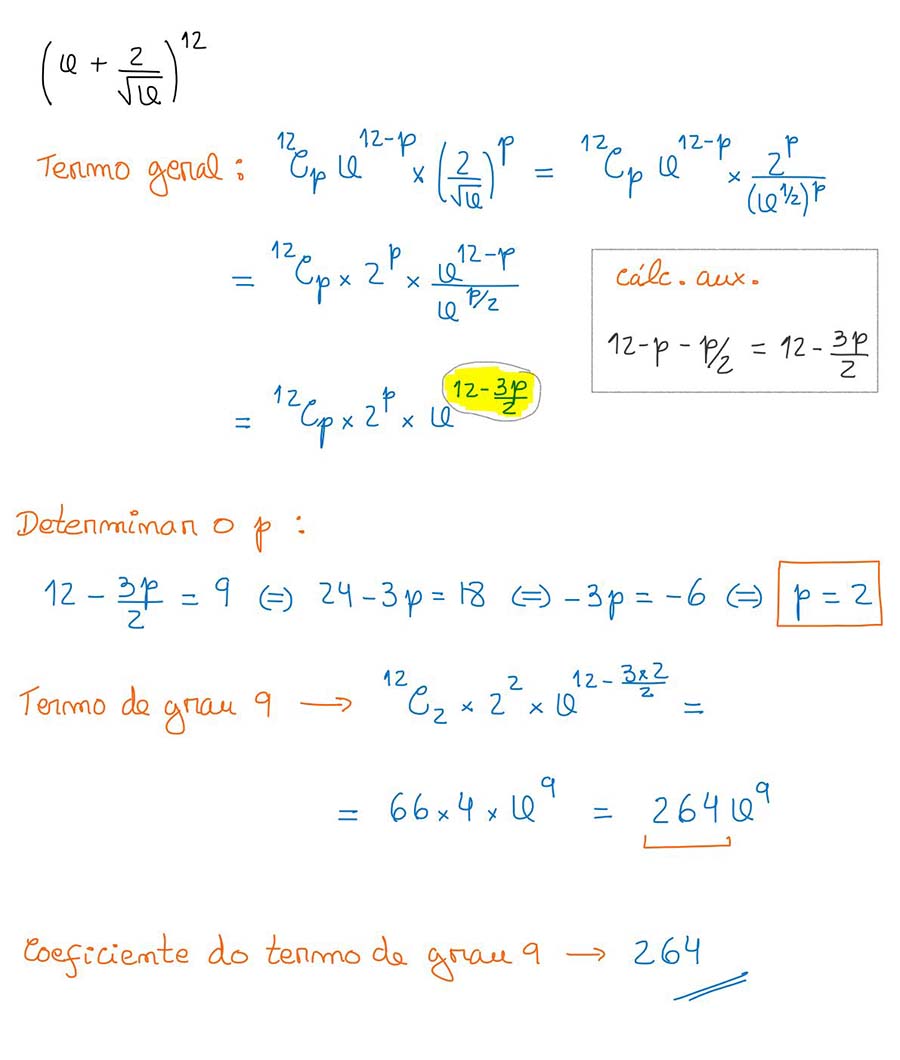 (φ + 2/√φ)^12
Termo geral: ¹²Cₚ φ^(12-p) × (2/√φ)^p = ¹²Cₚ φ^(12-p) × 2^p/(φ^½)^p
= ¹²Cₚ × 2^p × φ^(12-p)/φ^(p/2)
cálc. aux.
12-p - p/2 = 12 - 3p/2
= ¹²Cₚ × 2^p × φ^(12 - 3p/2)
Determinar o p :
12 - 3p/2 = 9 (=) 24 - 3p = 18 (=) -3p = -6 (=) p = 2
Termo de grau 9 → ¹²C₂ × 2² × φ^(12 - 3×2/2) =
= 66 × 4 × φ⁹ = 264φ⁹
Coeficiente do termo de grau 9 → 264